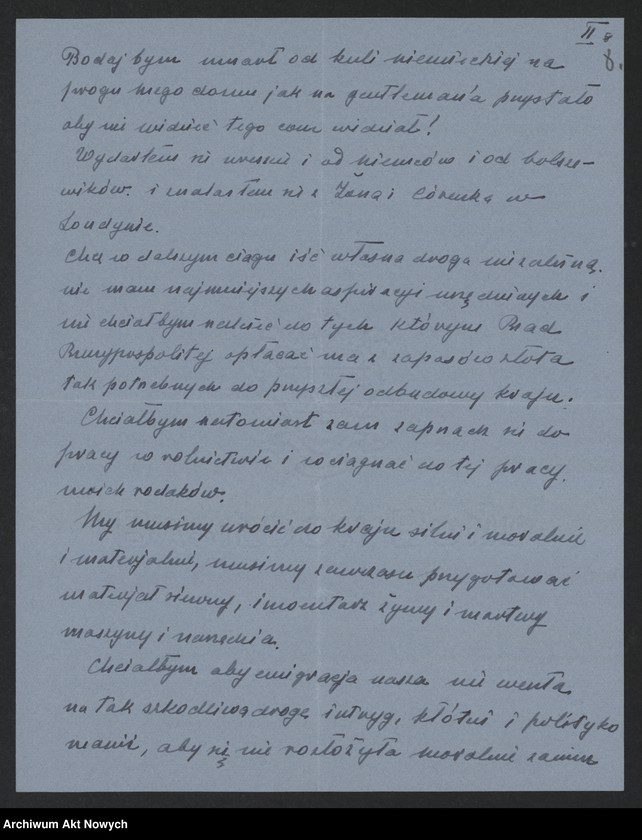 II 8
8.
Bodaj bym umarł od kuli niemieckiej na
progu mego domu jak na gentleman'a przystało
aby nie widzieć tego com widział!
Wydostałem się wreszcie i od niemców i od bolsze-
wików. i znalazłem się z Żoną i Córeczką w
Londynie.
Chcę w dalszym ciągu iść własną drogą niezależną.
nie mam najmniejszych aspiracji urzędniczych i
nie chciałbym należeć do tych którym Rząd
Rzeczypospolitej opłacać ma z zapasów złota
tak potrzebnych do przyszłej odbudowy kraju.
Chciałbym natomiast sam zaprządz się do
pracy w rolnictwie i wciągnąć do tej pracy
moich rodaków.
My musimy wrócić do kraju silni i moralnie
i materjalnie, musimy zawczasu przygotować
materjał siewny, i inwentarz żywy i martwy
maszyny i narzędzia.
Chciałbym aby emigracja nasza nie weszła
na tak szkodliwą drogę intryg, kłótni i polityko
manii, aby się nie rozłożyła moralnie zanim
Archiwum Akt Nowych